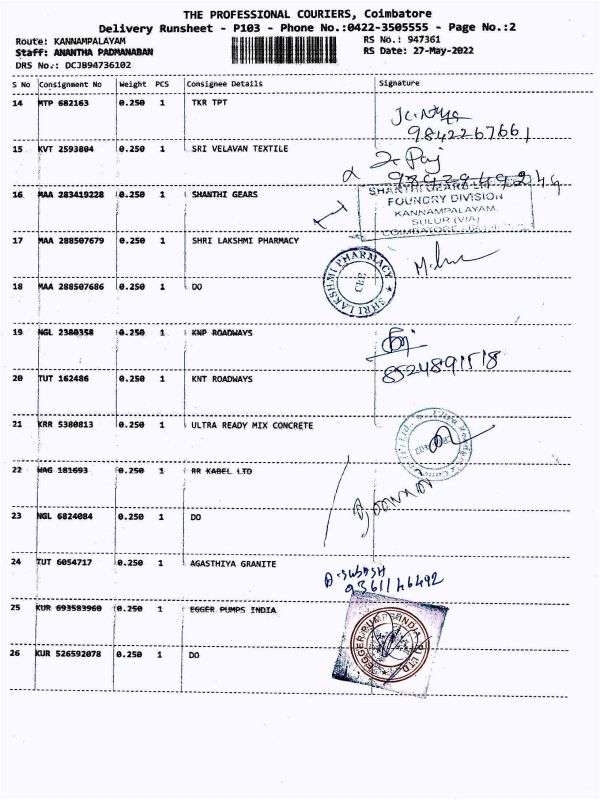 THE PROFESSIONAL COURIERS, Coimbatore
Delivery Runsheet - P103 - Phone No.:0422-3505555 - Page No.:2
Route: KANNAMPALAYAM RS No.: 947361
Staff: ANANTHA PADMANABAN RS Date: 27-May-2022
DRS No.: DCJB94736102
S No Consignment No Weight PCS Consignee Details Signature
14 MTP 682163 0.250 1 TKR TPT
9842267661
15 KVT 2593804 0.250 1 SRI VELAVAN TEXTILE
16 MAA 283419228 0.250 1 SHANTHI GEARS
SHANTHI GEARS
FOUNDRY DIVISION
KANNAMPALAYAM,
SULUR (VIA)
COIMBATORE
17 MAA 288507679 0.250 1 SHRI LAKSHMI PHARMACY
SHRI LAKSHMI PHARMACY
18 MAA 288507686 0.250 1 DO
19 NGL 2380358 0.250 1 KNP ROADWAYS
8524891518
20 TUT 162486 0.250 1 KNT ROADWAYS
21 KRR 5380813 0.250 1 ULTRA READY MIX CONCRETE
22 WAG 181693 0.250 1 RR KABEL LTD
23 NGL 6824084 0.250 1 DO
24 TUT 6054717 0.250 1 AGASTHIYA GRANITE
A.SUBASH
9361146492
25 KUR 693583960 0.250 1 EGGER PUMPS INDIA
EGGER PUMPS INDIA (P) LTD
26 KUR 526592078 0.250 1 DO